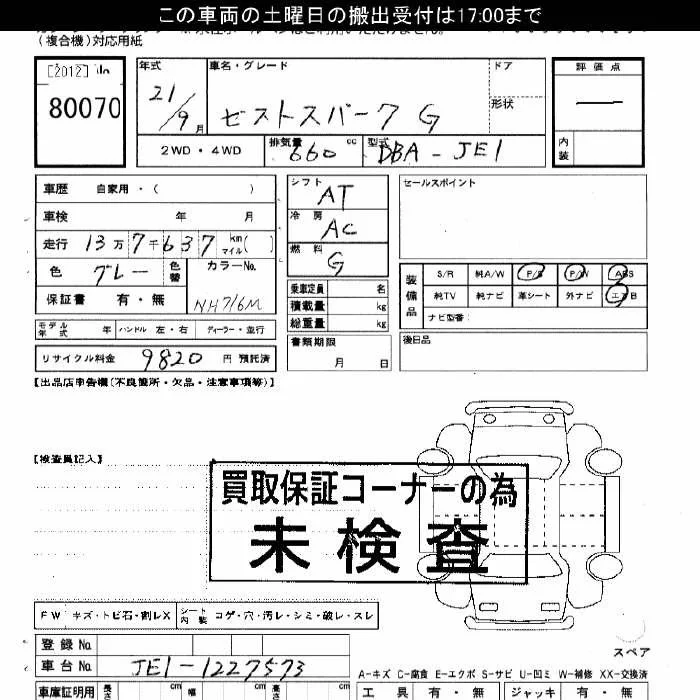 この車両の土曜日の搬出受付は17:00まで
(複合機)対応用紙
[2012] No
80070
年式 21/9月
車名・グレード ゼストスパーク G
ドア
形状
評価点 —
内装
2WD・4WD
排気量 660 cc
型式 DBA-JE1
車歴 自家用・( )
車検 年 月
走行 13万7千637 km マイル ( )
色 グレー 色替
カラーNo. NH716M
保証書 有・無
シフト AT
冷房 AC
燃料 G
乗車定員 名
積載量 kg
総重量 kg
書類期限 月 日
セールスポイント
装備品
S/R 純A/W P/S P/W ABS
純TV 純ナビ 革シート 外ナビ エアB
ナビ型番:
後日品
モデル年式 年 ハンドル 左・右 ディーラー・並行
リサイクル料金 9820 円 預託済
【出品店申告欄(不良箇所・欠品・注意事項等)】
【検査員記入】
買取保証コーナーの為
未検査
FW キズ・トビ石・割レX
シート内装 コゲ・穴・汚レ・シミ・破レ・スレ
登録No.
車台No. JE1-1227573
スペア
A-キズ C-腐食 E-エクボ S-サビ U-凹ミ W-補修 XX-交換済
車庫証明用 長さ cm 幅 cm 高さ cm
工具 有・無 ジャッキ 有・無